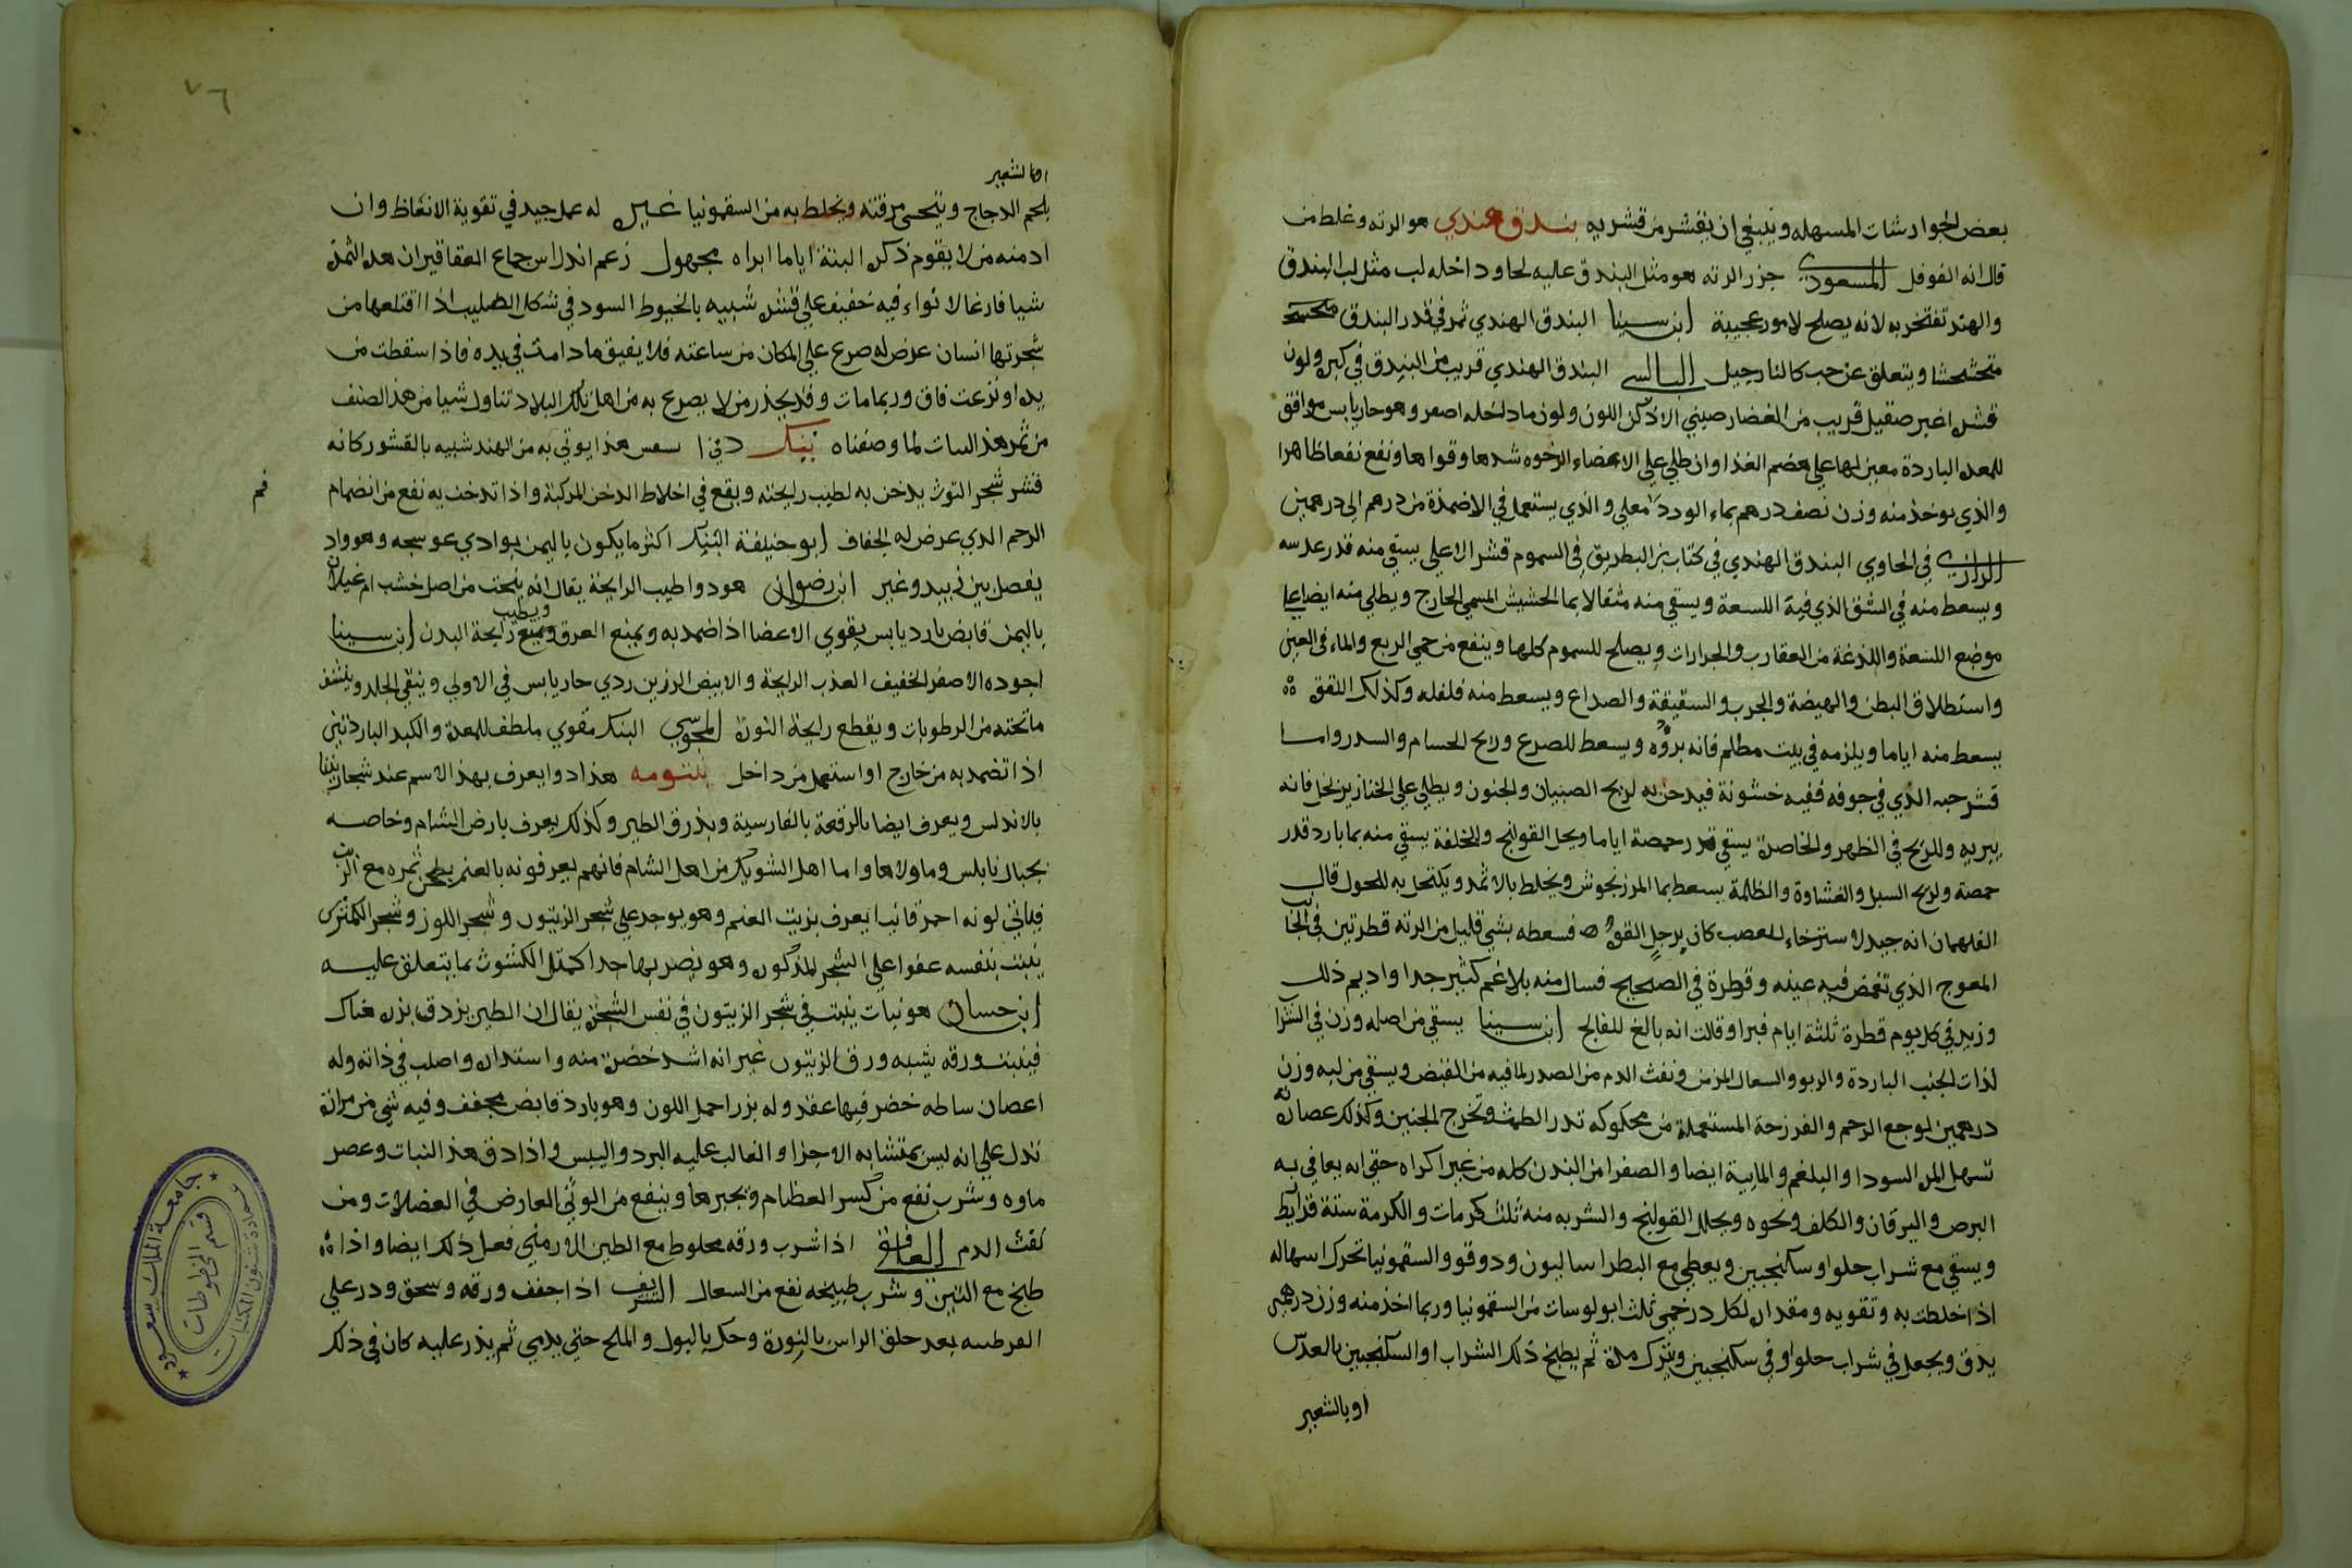 بعض الجوارشات المسهله وينبغي ان يقشر من قشريه بندق هندي هو الرته وغلط من
قال انه الفوفل المسعودي جزر الرته هو مثل البندق عليه لحا وداخله لب مثل لب البندق
والهند تفتخر به لانه يصلح لامور عجيبة ابن سينا البندق الهندي ثمر في قدر البندق
متخشخشا ويتعلق عن حب كالنارجيل البالسي البندق الهندي قريب من البندق في كبره ولون
قشره اغبر صقيل قريب من الغضار صيني الادكن اللون ولون ما داخله اصفر وهو حار يابس موافق
للمعده الباردة معين لها على هضم الغذا وان طلي على الاعضاء الرخوه شدها وقواها ونفع نفعا ظاهرا
والذي يوخذ منه وزن نصف درهم بماء الورد مغلي والذي يستعمل في الاضمدة من درهم الى درهمين
الرازي في الحاوي البندق الهندي في كتاب بن البطريق في السموم قشره الاعلى يسقي منه قدر عدسه
ويسعط منه في الشق الذي فيه اللسعة ويسقي منه مثقالا بما الحشيش المسمى الحارج ويطلى منه ايضا على
موضع اللسعة واللذغة من العقارب والجرارات ويصلح للسموم كلها وينفع من حمى الربع والماء في العين
واستطلاق البطن والهيضة والجرب والسقيقة والصداع ويسعط منه فلفله وكذلك اللقق
يسعط منه اياما ويلزمه في بيت مظلم فانه بروه ويسعط للصرع وريح الحسام والسدر واما
قشر حبه الذي في جوفه ففيه خشونة فيدخن به لريح الصبيان والجنون ويطلى على الخنازير بخل فانه
يبريه وللريح في الظهر والخاصرة يسقي قدر حمصة اياما ويحل القولنج والخلفة يسقي منه بما بارد قدر
حمصة ولريح السبل والغشاوة والظلمة يسعط بما المرزنجوش ويخلط بالاثمد ويكتحل به للحول قال
الغلهمان انه جيد لاسترخاء العصب كان برجل القوه فسعطه بشي قليل من الرته قطرتين في الجانب
المعوج الذي تغمض فيه عينه وقطرة في الصحيح فسال منه بلاغم كثير جدا واديم ذلك
وزيد في كل يوم قطرة ثلثة ايام فبرا وقالت انه بالغ للفالج ابن سينا يسقي من اصله وزن في الشراب
لذات الجنب الباردة والربو والسعال المزمن ونفث الدم من الصدر لما فيه من القبض ويسقي من لبه وزن
درهمين لوجع الرحم والفرزجة المستعملة من محكوكه تدر الطمث وتخرج الجنين وكذلك عصارته
تسهل المره السودا والبلغم والمايية ايضا والصفرا من البدن كله من غير اكراه حتى انه يعافي به
البرص واليرقان والكلف ونحوه ويحلل القولنج والشربه منه ثلث كرمات والكرمة ستة قراريط
ويسقي مع شراب حلو او سكنجبين ويعطى مع البطراساليون ودوقو والسقمونيا تحرك اسهاله
اذا خلطت به وتقويه ومقداره لكل درخمي ثلث ابولوسات من السقمونيا وربما اخذ منه وزن درهمين
يدق ويجعل في شراب حلو او في سكنجبين ويترك مدة ثم يطبخ ذلك الشراب او السكنجبين بالعدس
او بالشعير
٧٦
او بالشعير
بلحم الدجاج ويتحسى مرقته ويخلط به من السقمونيا غيره له عمل جيد في تقوية الانعاظ وان
ادمنه من لا يقوم ذكره البتة اياما ابراه مجهول زعم اندراس جماع العقاقير ان هذه الثمرة
شيا فارغا لا نواء فيه خفيف على قشره شبيه بالخيوط السود في شكل الصليب اذا اقتلعها من
شجرتها انسان عرض له صرع على المكان من ساعته فلا يفيق ما دامت في يده فاذا سقطت من
يده او نزعت فاق وربما مات وقد يحذر من لا يصرع به من اهل تلك البلاد تناول شيا من هذا الصنف
من ثمر هذا النبات لما وصفناه بنك دفي ا سعس هذا يوتي به من الهند شبيه بالقشور كانه
قشر شجر التوث يدخن به لطيب رايحته ويقع في اخلاط الدخن المركبة واذا تدخن به نفع من انضمام
الرحم الذي عرض له الجفاف ابو حنيفة البنك اكثر ما يكون باليمن بوادي عوسجه وهو واد
يفصل بين زبيد وغيره ابن رضوان هو دوا طيب الرايحة يقال انه ينحت من اصل خشب ام غيلان
باليمن قابض بارد يابس يقوي الاعضا اذا ضمد به ويمنع العرق ويطيب رايحة البدن ابن سينا
اجوده الاصفر الخفيف العذب الرايحة والابيض الرزين ردي حار يابس في الاولى وينقي الجلد وينشف
ما تحته من الرطوبات ويقطع رايحة النورة المجوسي البنك مقوي ملطف للمعدة والكبد الباردتين
اذا تضمد به من خارج او استعمل من داخل بنتومه هذا دوا يعرف بهذا الاسم عند شجارينا
بالاندلس ويعرف ايضا بالرقعة بالفارسية وبذرق الطير وكذلك يعرف بارض الشام وخاصه
بجبال نابلس وما ولاها واما اهل الشوبك من اهل الشام فانهم يعرفونه بالعنم يطحن ثمره مع الزيت
فياتي لونه احمر قانيا يعرف بزيت العنم وهو يوجد على شجر الزيتون وشجر اللوز وشجر الكمثرى
ينبت بنفسه عفوا على الشجر المذكور وهو يضر بها جدا كمثل الكشوث بما يتعلق عليه
ابن حسان هو نبات ينبت في شجر الزيتون في نفس الشجرة يقال ان الطير يزدق بزره هناك
فينبت ورقه يشبه ورق الزيتون غير انه اشد خضرة منه واستداره واصلب في ذاته وله
اعصان ساطه خضر فيها عقد وله بزر احمر اللون وهو بارد قابض مجفف وفيه شي من مرارة
تدل على انه ليس بمتشابه الاجزا والغالب عليه البرد واليبس واذا دق هذا النبات وعصر
ماوه وشرب نفع من كسر العظام وجبرها وينفع من الوثي العارض في العضلات ومن
نفث الدم الغافقي اذا شرب ورقه مخلوط مع الطين الارميني فعل ذلك ايضا واذا
طبخ مع التين وشرب طبيخه نفع من السعال الشريف اذا جفف ورقه وسحق وذر على
القرطسه بعد حلق الراس بالنورة وحك بالبول والملح حتى يدمي ثم يذر عليه كان في ذلك
جامعة الملك سعود
عمادة شئون المكتبات
قسم المخطوطات